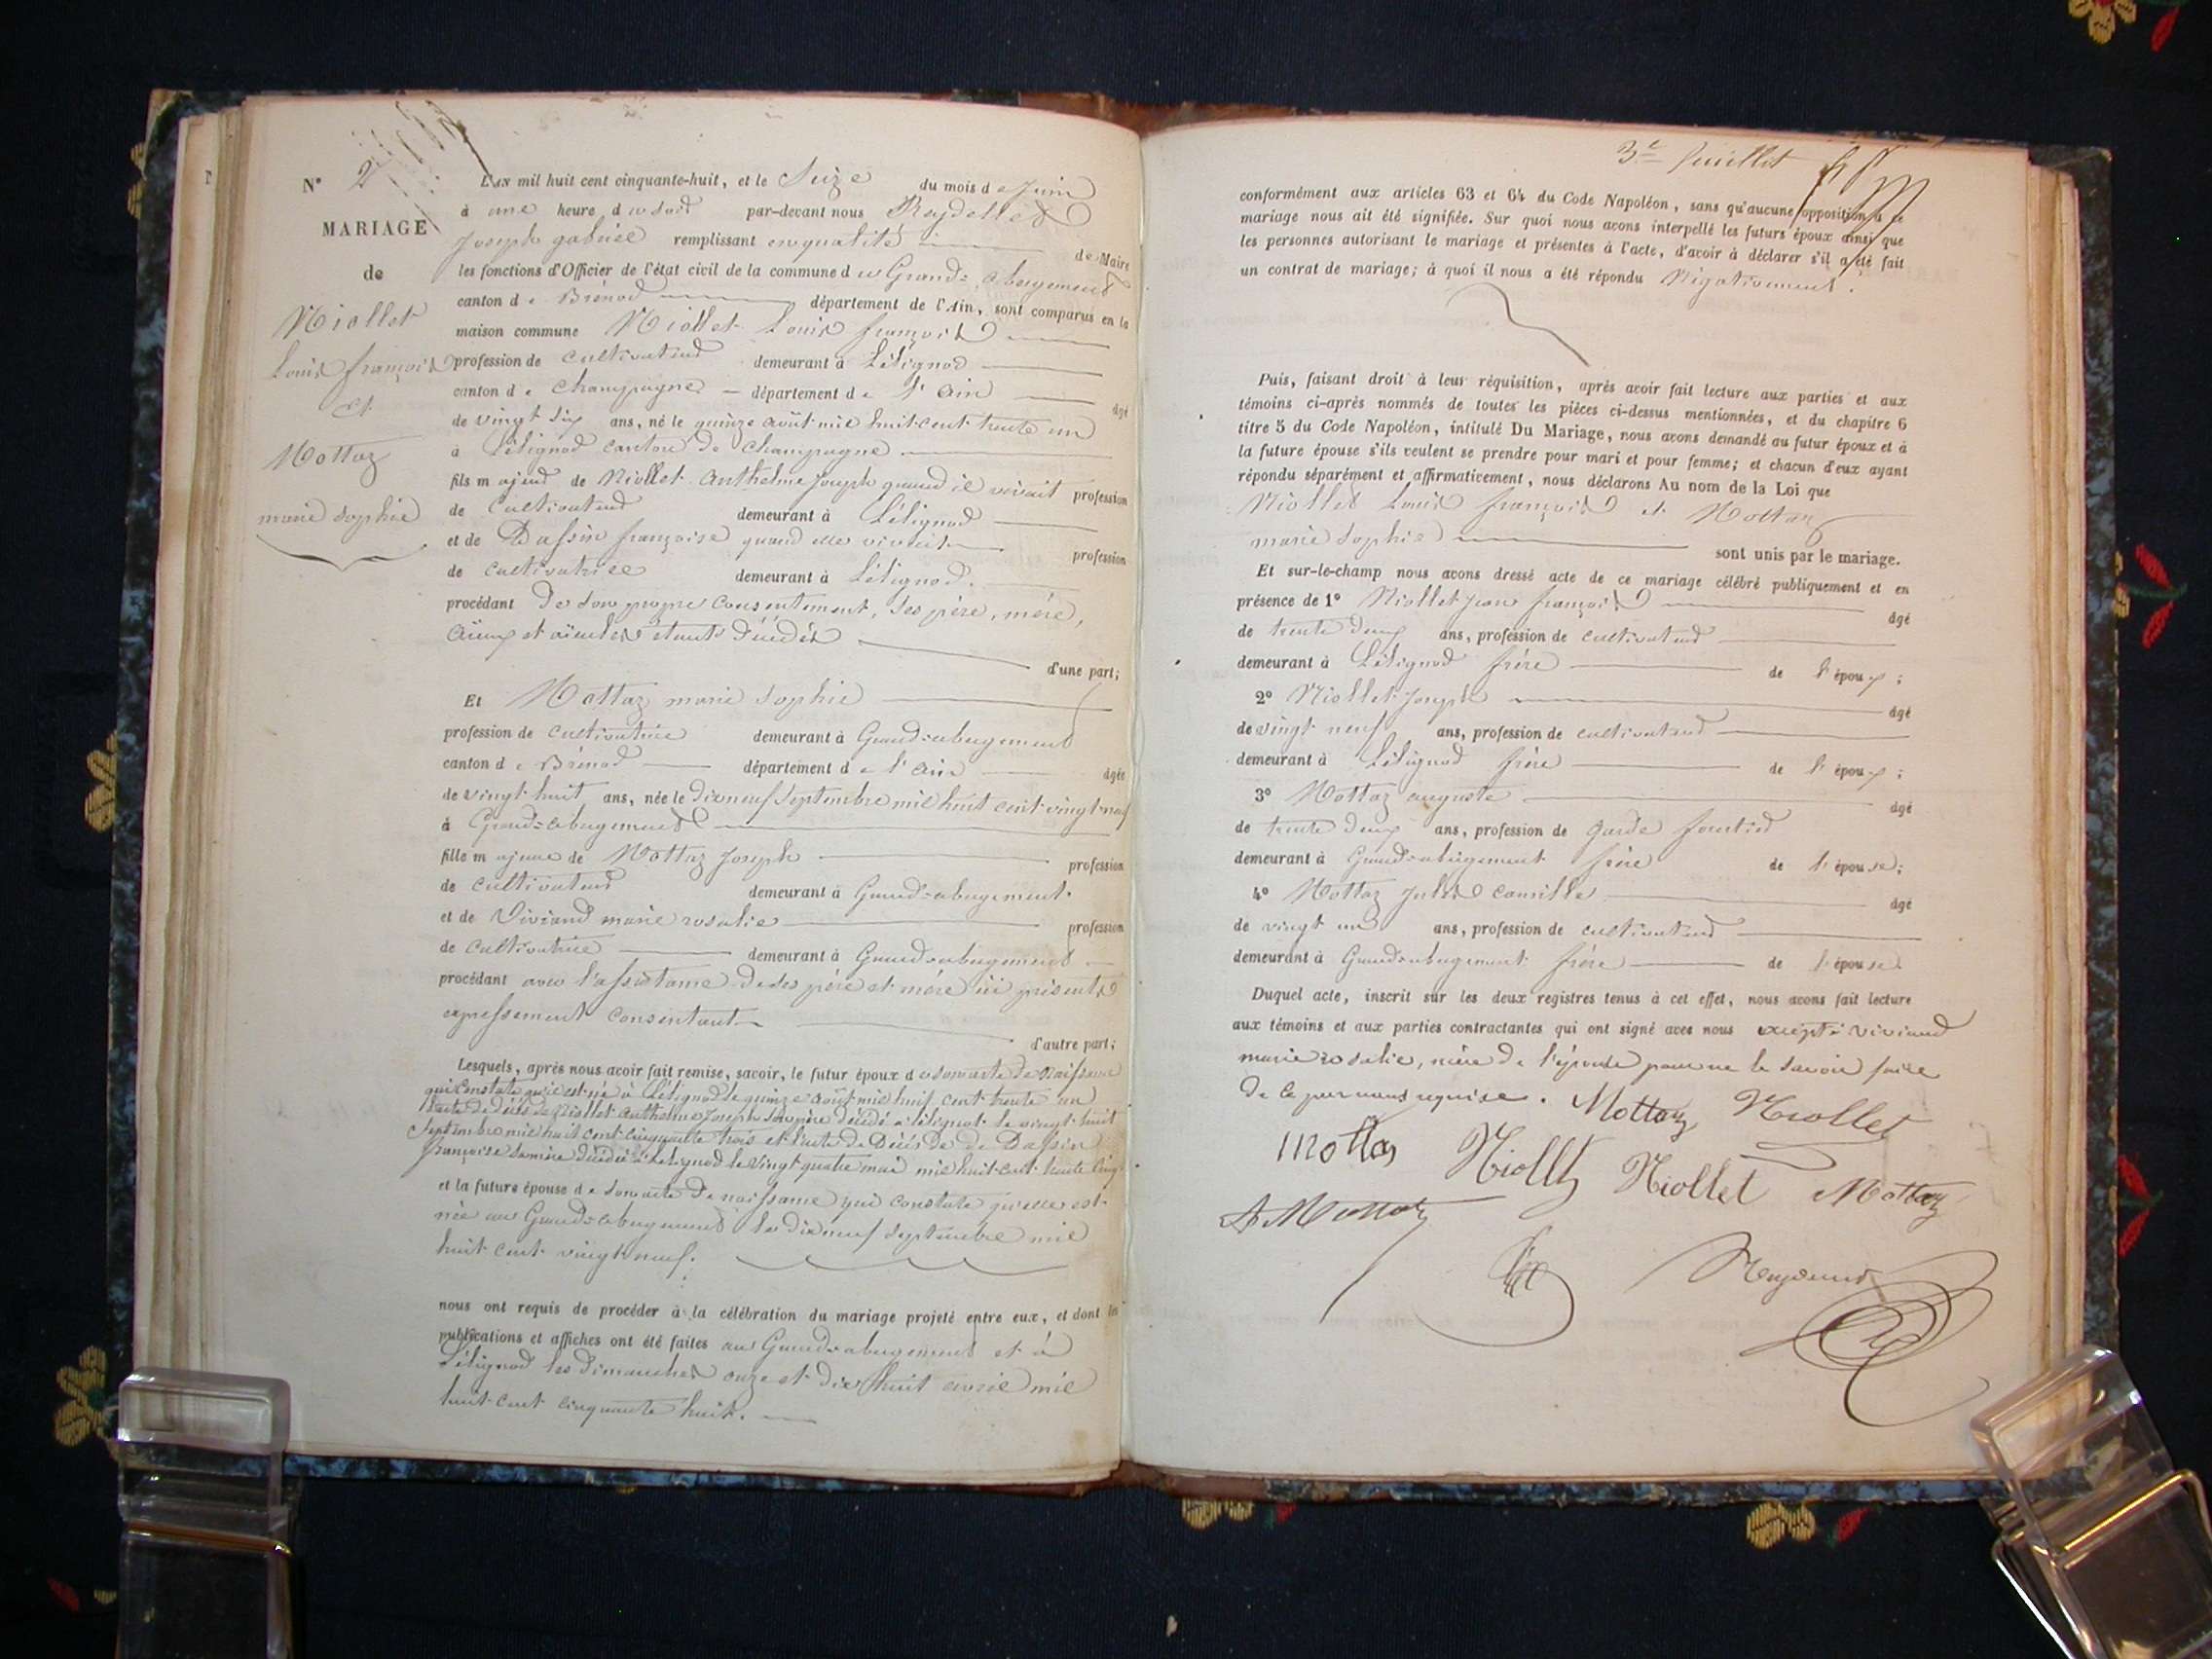 N° 2
MARIAGE
de
Niollet
Louis françois
et
Mottaz
marie Sophie
L'AN mil huit cent cinquante-huit, et le Seize du mois de Juin
à une heure du Soir par-devant nous Reydellet
Joseph gabriel remplissant en qualité de Maire
les fonctions d'Officier de l'état civil de la commune du Grand-abergement
canton de Brénod département de l'Ain, sont comparus en la
maison commune Niollet Louis françois
profession de Cultivateur demeurant à Lilignod
canton de Champagne département de l'Ain âgé
de vingt six ans, né le quinze août mil huit cent trente un
à Lilignod canton de Champagne
fils majeur de Niollet Anthelme Joseph quand il vivait profession
de Cultivateur demeurant à Lilignod
et de Dassin françoise quand elle vivait profession
de Cultivatrice demeurant à Lilignod.
procédant de son propre Consentement, ses père, mère,
aïeux et aïeules étant décédés
d'une part;
Et Mottaz marie Sophie
profession de Cultivatrice demeurant à Grand-abergement
canton de Brénod département de l'Ain âgée
de vingt huit ans, née le dix neuf Septembre mil huit cent vingt neuf
à Grand-abergement
fille majeure de Mottaz Joseph profession
de Cultivateur demeurant à Grand-abergement.
et de Viviand marie rosalie profession
de Cultivatrice demeurant à Grand-abergement
procédant avec l'assistance de ses père et mère ici présents
expressement Consentant
d'autre part;
Lesquels, après nous avoir fait remise, savoir, le futur époux de son acte de Naissance
qui Constate qu'il est né à Lilignod le quinze août mil huit cent trente un
l'acte de décès de Niollet Anthelme Joseph Son père décédé à Lilignod le vingt huit
Septembre mil huit cent cinquante trois et l'acte de Décès de Dassin
françoise Sa mère décédée à Lilignod le Vingt quatre mai mil huit cent trente cinq
et la future épouse de Son acte de naissance qui constate qu'elle est
née au Grand-abergement le dix neuf Septembre mil
huit cent vingt neuf.
nous ont requis de procéder à la célébration du mariage projeté entre eux, et dont les
publications et affiches ont été faites au Grand-abergement et à
Lilignod les Dimanches onze et dix huit avril mil
huit cent cinquante huit.
3e feuillet
conformément aux articles 63 et 64 du Code Napoléon, sans qu'aucune opposition à ce
mariage nous ait été signifiée. Sur quoi nous avons interpellé les futurs époux ainsi que
les personnes autorisant le mariage et présentes à l'acte, d'avoir à déclarer s'il a été fait
un contrat de mariage; à quoi il nous a été répondu Négativement.
Puis, faisant droit à leur réquisition, après avoir fait lecture aux parties et aux
témoins ci-après nommés de toutes les pièces ci-dessus mentionnées, et du chapitre 6
titre 5 du Code Napoléon, intitulé Du Mariage, nous avons demandé au futur époux et à
la future épouse s'ils veulent se prendre pour mari et pour femme; et chacun d'eux ayant
répondu séparément et affirmativement, nous déclarons Au nom de la Loi que
Niollet Louis françois et Mottaz
marie Sophie sont unis par le mariage.
Et sur-le-champ nous avons dressé acte de ce mariage célébré publiquement et en
présence de 1° Niollet Jean françois âgé
de trente deux ans, profession de cultivateur
demeurant à Lilignod frère de l'époux;
2° Niollet Joseph âgé
de vingt neuf ans, profession de cultivateur
demeurant à Lilignod frère de l'époux;
3° Mottaz auguste âgé
de trente deux ans, profession de garde forestier
demeurant à Grand-abergement frère de l'épouse;
4° Mottaz Jules Camille âgé
de vingt un ans, profession de cultivateur
demeurant à Grand-abergement frère de l'épouse.
Duquel acte, inscrit sur les deux registres tenus à cet effet, nous avons fait lecture
aux témoins et aux parties contractantes qui ont signé avec nous excepté Viviand
marie rosalie, mère de l'épouse pour ne le savoir faire
de ce par nous requise. Mottaz Niollet
Mottaz Niollet Niollet Mottaz
A Mottaz